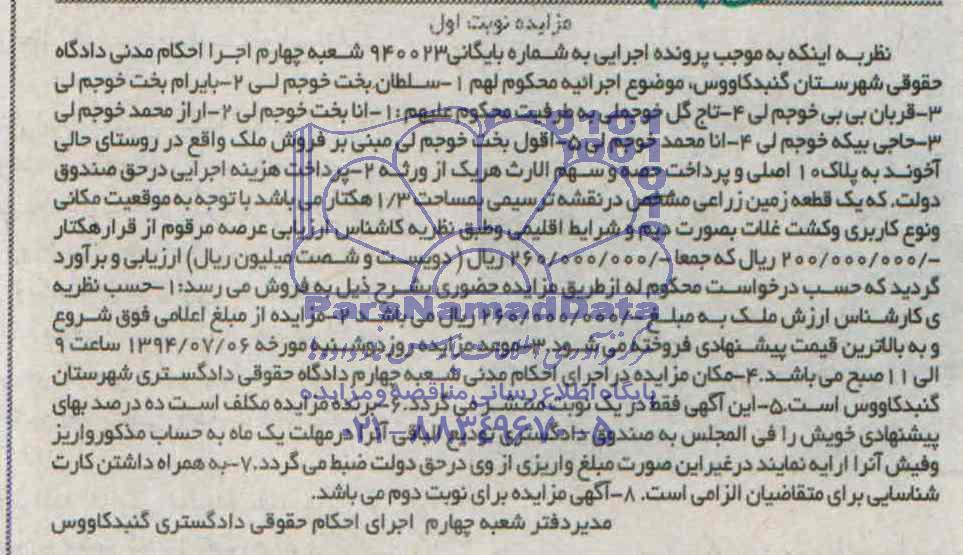 مزایده نوبت اول
نظر به اینکه به موجب پرونده اجرایی به شماره بایگانی ۹۴۰۰۲۳ شعبه چهارم اجرا احکام مدنی دادگاه
حقوقی شهرستان گنبدکاووس، موضوع اجرائیه محکوم لهم ۱-سلطان بخت خوجم لی ۲-بایرام بخت خوجم لی
۳-قربان بی بی خوجم لی ۴-تاج گل خوجملی به طرفیت محکوم علیهم: ۱-انا بخت خوجم لی ۲-اراز محمد خوجم لی
۳-حاجی بیکه خوجم لی ۴-انا محمد خوجم لی ۵-اقول بخت خوجم لی مبنی بر فروش ملک واقع در روستای حالی
آخوند به پلاک ۱۰ اصلی و پرداخت حصه و سهم الارث هریک از ورثه ۲-پرداخت هزینه اجرایی درحق صندوق
دولت، که یک قطعه زمین زراعی مشخص در نقشه ترسیمی بمساحت ۱/۳ هکتار می باشد با توجه به موقعیت مکانی
ونوع کاربری وکشت غلات بصورت دیم و شرایط اقلیمی وطبق نظریه کاشناس ارزیابی عرصه مرقوم از قرار هکتار
-/۲۰۰/۰۰۰/۰۰۰ ریال که جمعا -/۲۶۰/۰۰۰/۰۰۰ ریال (دویست و شصت میلیون ریال) ارزیابی و برآورد
گردید که حسب درخواست محکوم له ازطریق مزایده حضوری بشرح ذیل به فروش می رسد: ۱-حسب نظریه
ی کارشناس ارزش ملک به مبلغ -/۲۶۰/۰۰۰/۰۰۰ ریال می باشد ۲-مزایده از مبلغ اعلامی فوق شروع
و به بالاترین قیمت پیشنهادی فروخته می شود. ۳-موعد مزایده روز دوشنبه مورخه ۱۳۹۴/۰۷/۰۶ ساعت ۹
الی ۱۱ صبح می باشد. ۴-مکان مزایده در اجرای احکام مدنی شعبه چهارم دادگاه حقوقی دادگستری شهرستان
گنبدکاووس است. ۵-این آگهی فقط در یک نوبت منتشر می گردد. ۶-برنده مزایده مکلف است ده درصد بهای
پیشنهادی خویش را فی المجلس به صندوق دادگستری تودیع الباقی آنرا درمهلت یک ماه به حساب مذکور واریز
وفیش آنرا ارایه نمایند درغیر این صورت مبلغ واریزی از وی درحق دولت ضبط می گردد. ۷-به همراه داشتن کارت
شناسایی برای متقاضیان الزامی است. ۸-آگهی مزایده برای نوبت دوم می باشد.
مدیردفتر شعبه چهارم اجرای احکام حقوقی دادگستری گنبدکاووس
ParsNamadData
پایگاه اطلاع رسانی مناقصه و مزایده
۰۲۱-۸۸۳۴۹۶۷۰-۵